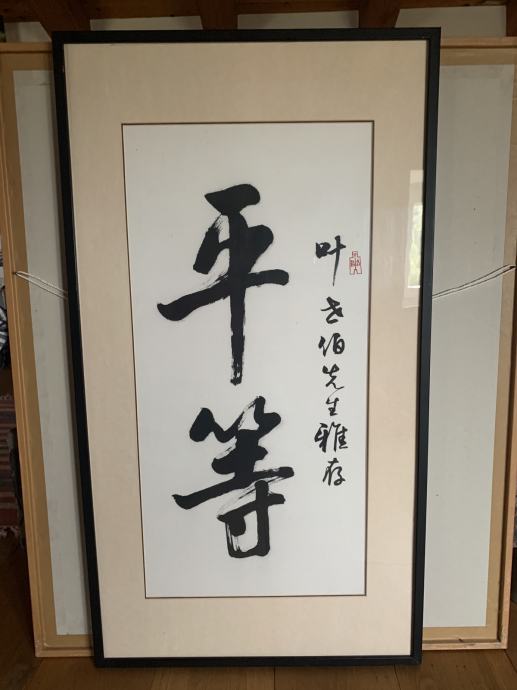 叶世伯先生雅存
平等